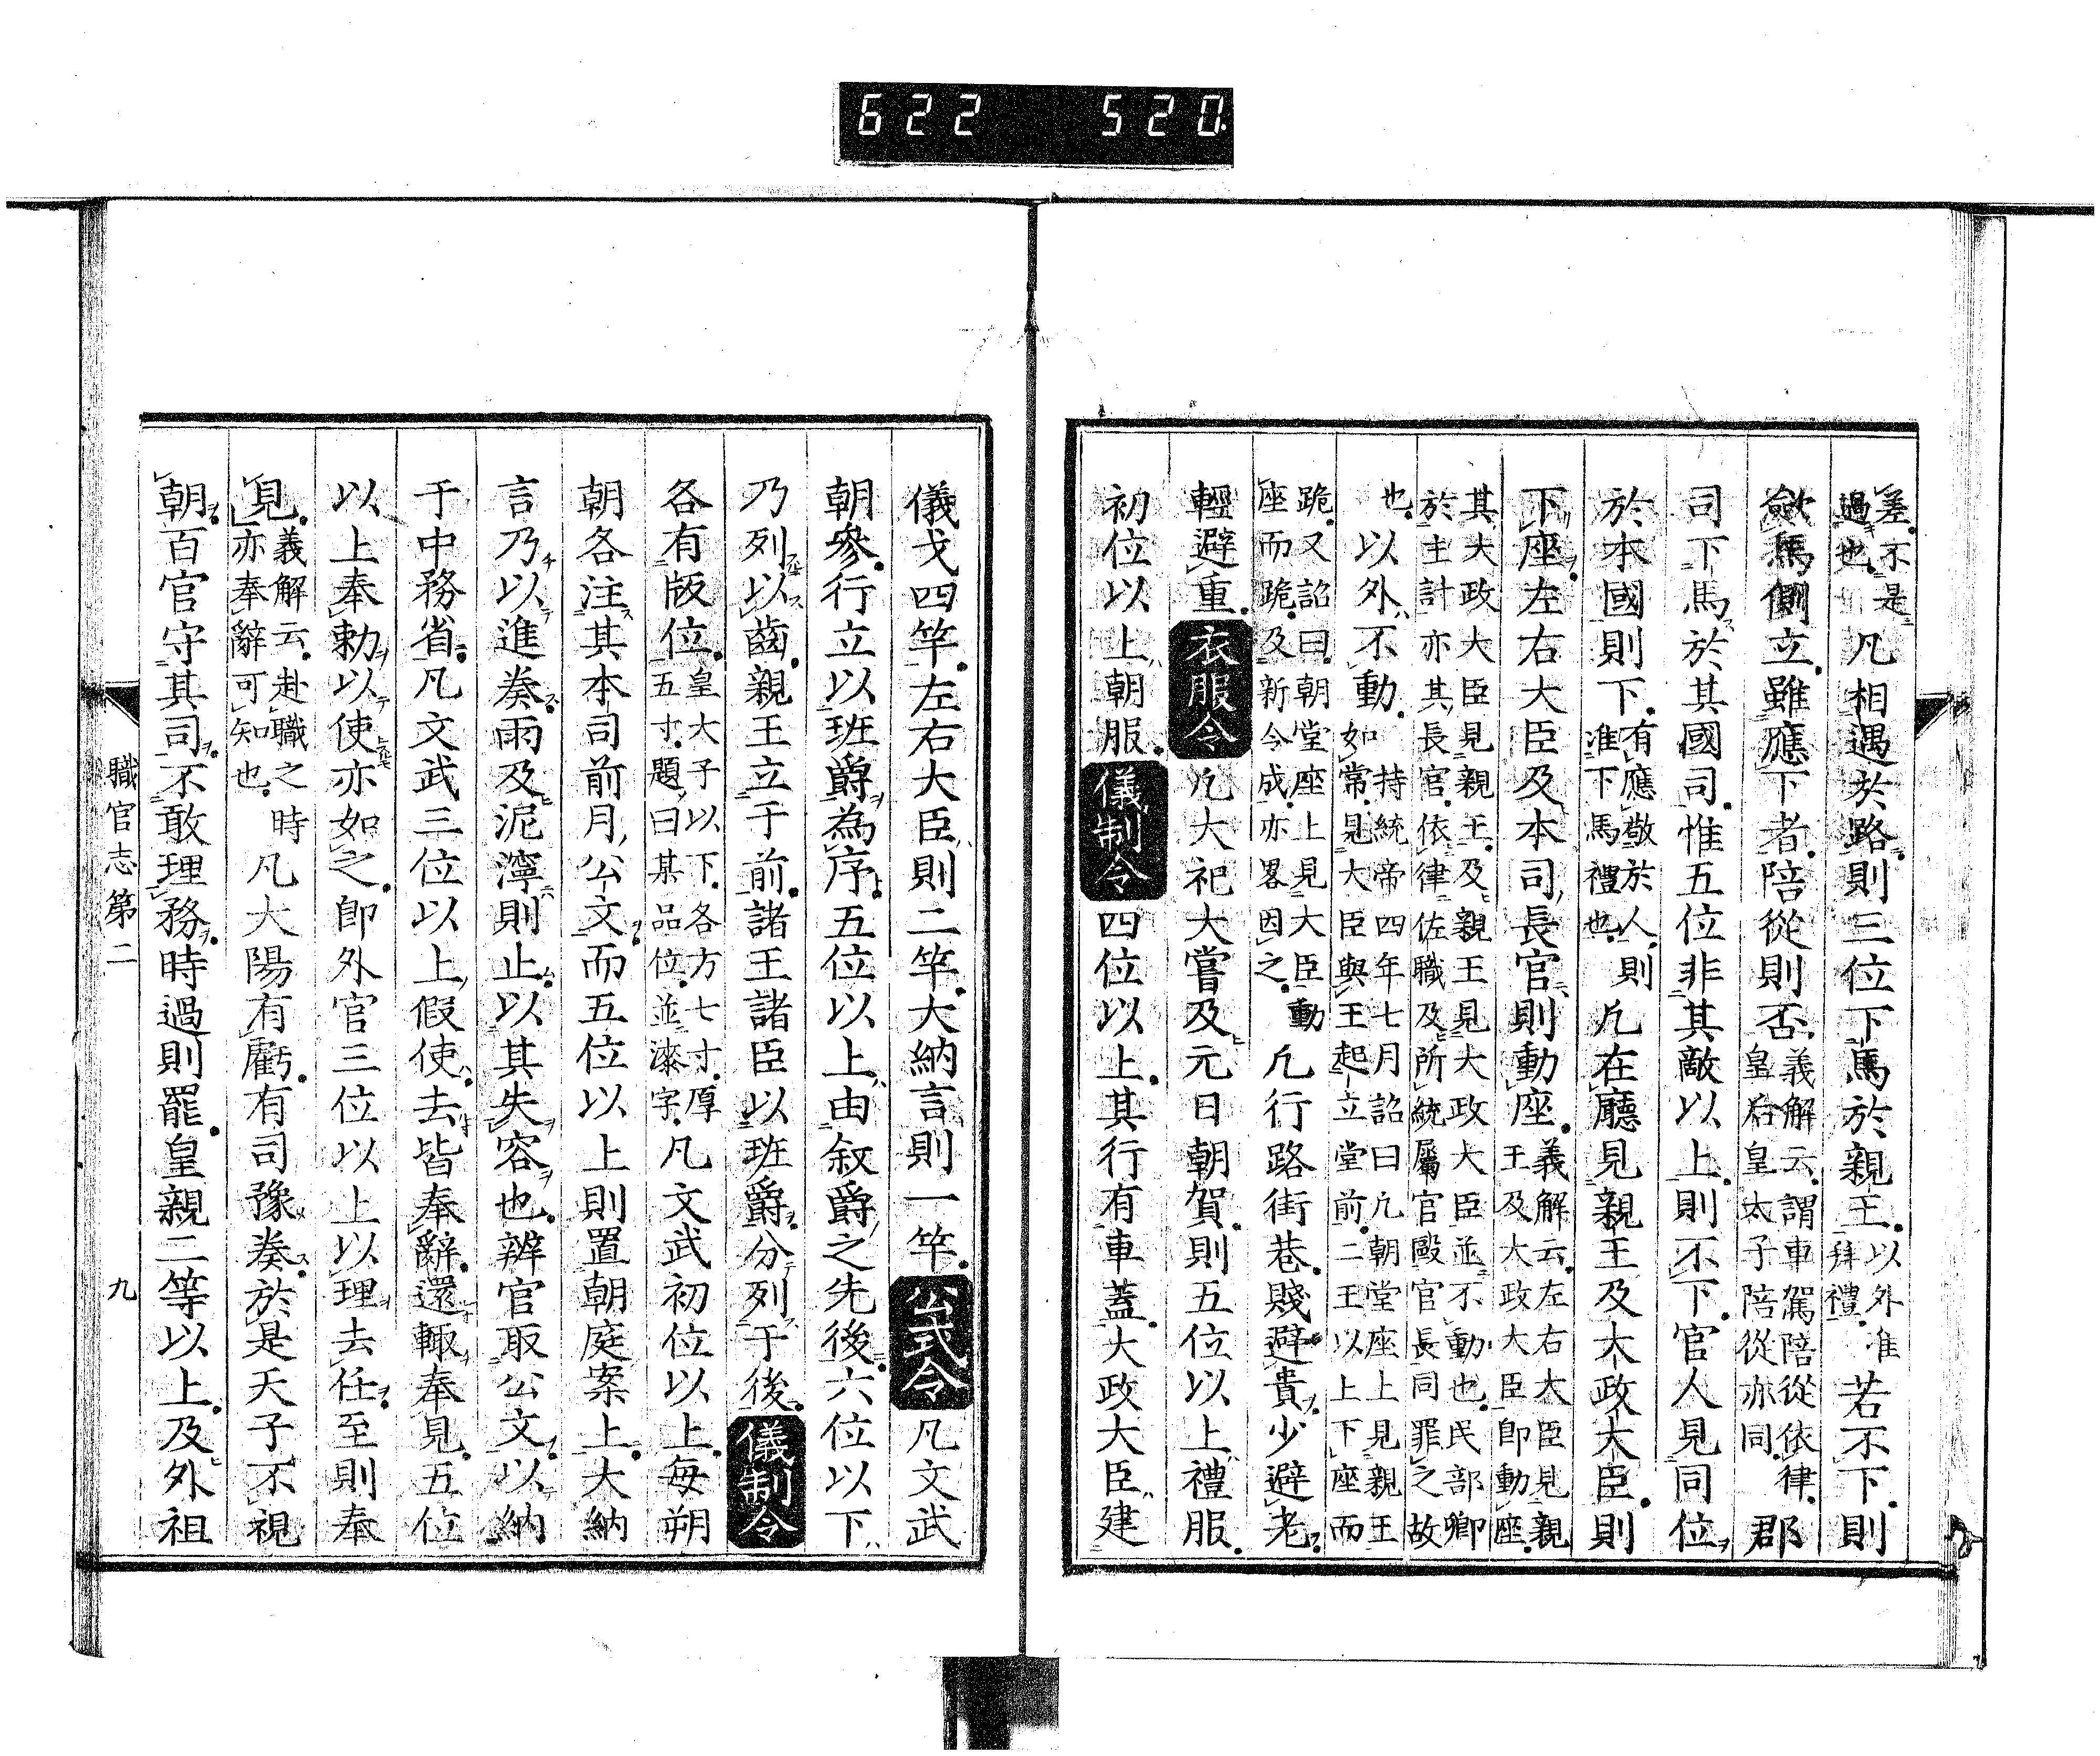 622 520
差不是過也凡相遇於路則三位下馬於親王以外准拜禮若不下則
斂馬側立雖應下者陪從則否義解云謂車駕陪從依律皇后皇太子陪從亦同郡
司下馬於其國司惟五位非其敵以上則不下官人見同位
於本國則下有應敬於人則准下馬禮也凡在廳見親王及大政大臣則
下座左右大臣及本司長官則動座義解云左右大臣見親王及大政大臣即動座
其大政大臣見親王及親王見大政大臣並不動也民部卿
於主計亦其長官依律佐職及所統屬官毆官長同罪之故
也以外不動持統帝四年七月詔曰凡朝堂座上見親王如常見大臣與王起立堂前二王以上下座而
跪又詔曰朝堂座上見大臣動座而跪及新令成亦畧因之凡行路街巷賤避貴少避老
輕避重衣服令凡大祀大嘗及元日朝賀則五位以上禮服
初位以上朝服儀制令四位以上其行有車蓋大政大臣建
儀戈四竿左右大臣則二竿大納言則一竿公式令凡文武
朝參行立以班爵為序五位以上由叙爵之先後六位以下
乃列以齒親王立于前諸王諸臣以班爵分列于後儀制令
各有版位皇大子以下各方七寸厚五寸題曰某品位並漆字凡文武初位以上每朔
朝各注其本司前月公文而五位以上則置朝庭案上大納
言乃以進奏雨及泥濘則止以其失容也辨官取公文以納
于中務省凡文武三位以上假使去皆奉辭還輙奉見五位
以上奉勅以使亦如之即外官三位以上以理去任至則奉
見義解云赴職之時亦奉辭可知也凡大陽有虧有司豫奏於是天子不視
朝百官守其司不敢理務時過則罷皇親二等以上及外祖
職官志第二 九